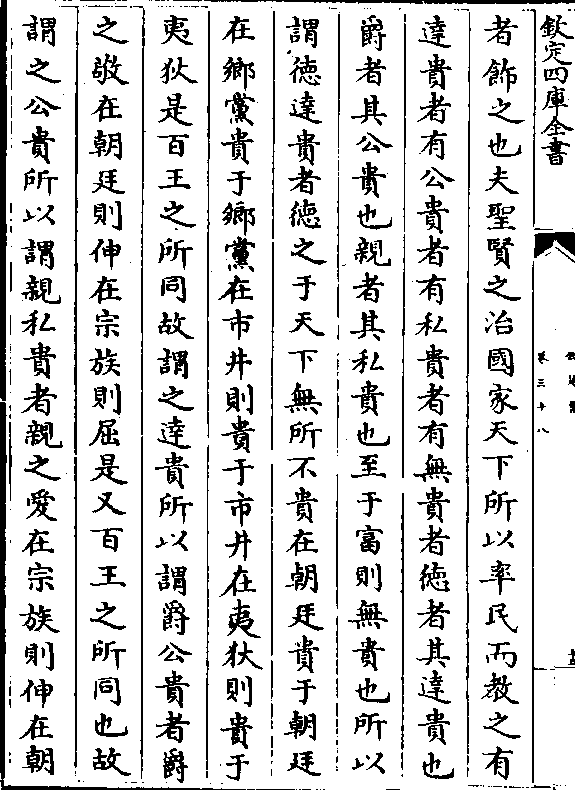 欽定四庫全書
卷三十八
者飾之也夫聖賢之治國家天下所以率民而教之有
達貴者有公貴者有私貴者有無貴者徳者其達貴也
爵者其公貴也親者其私貴也至于富則無貴也所以
謂徳達貴者徳之于天下無所不貴在朝廷貴于朝廷
在鄉黨貴于鄉黨在市井則貴于市井在夷狄則貴于
夷狄是百王之所同故謂之達貴所以謂爵公貴者爵
之敬在朝廷則伸在宗族則屈是又百王之所同也故
謂之公貴所以謂親私貴者親之愛在宗族則伸在朝